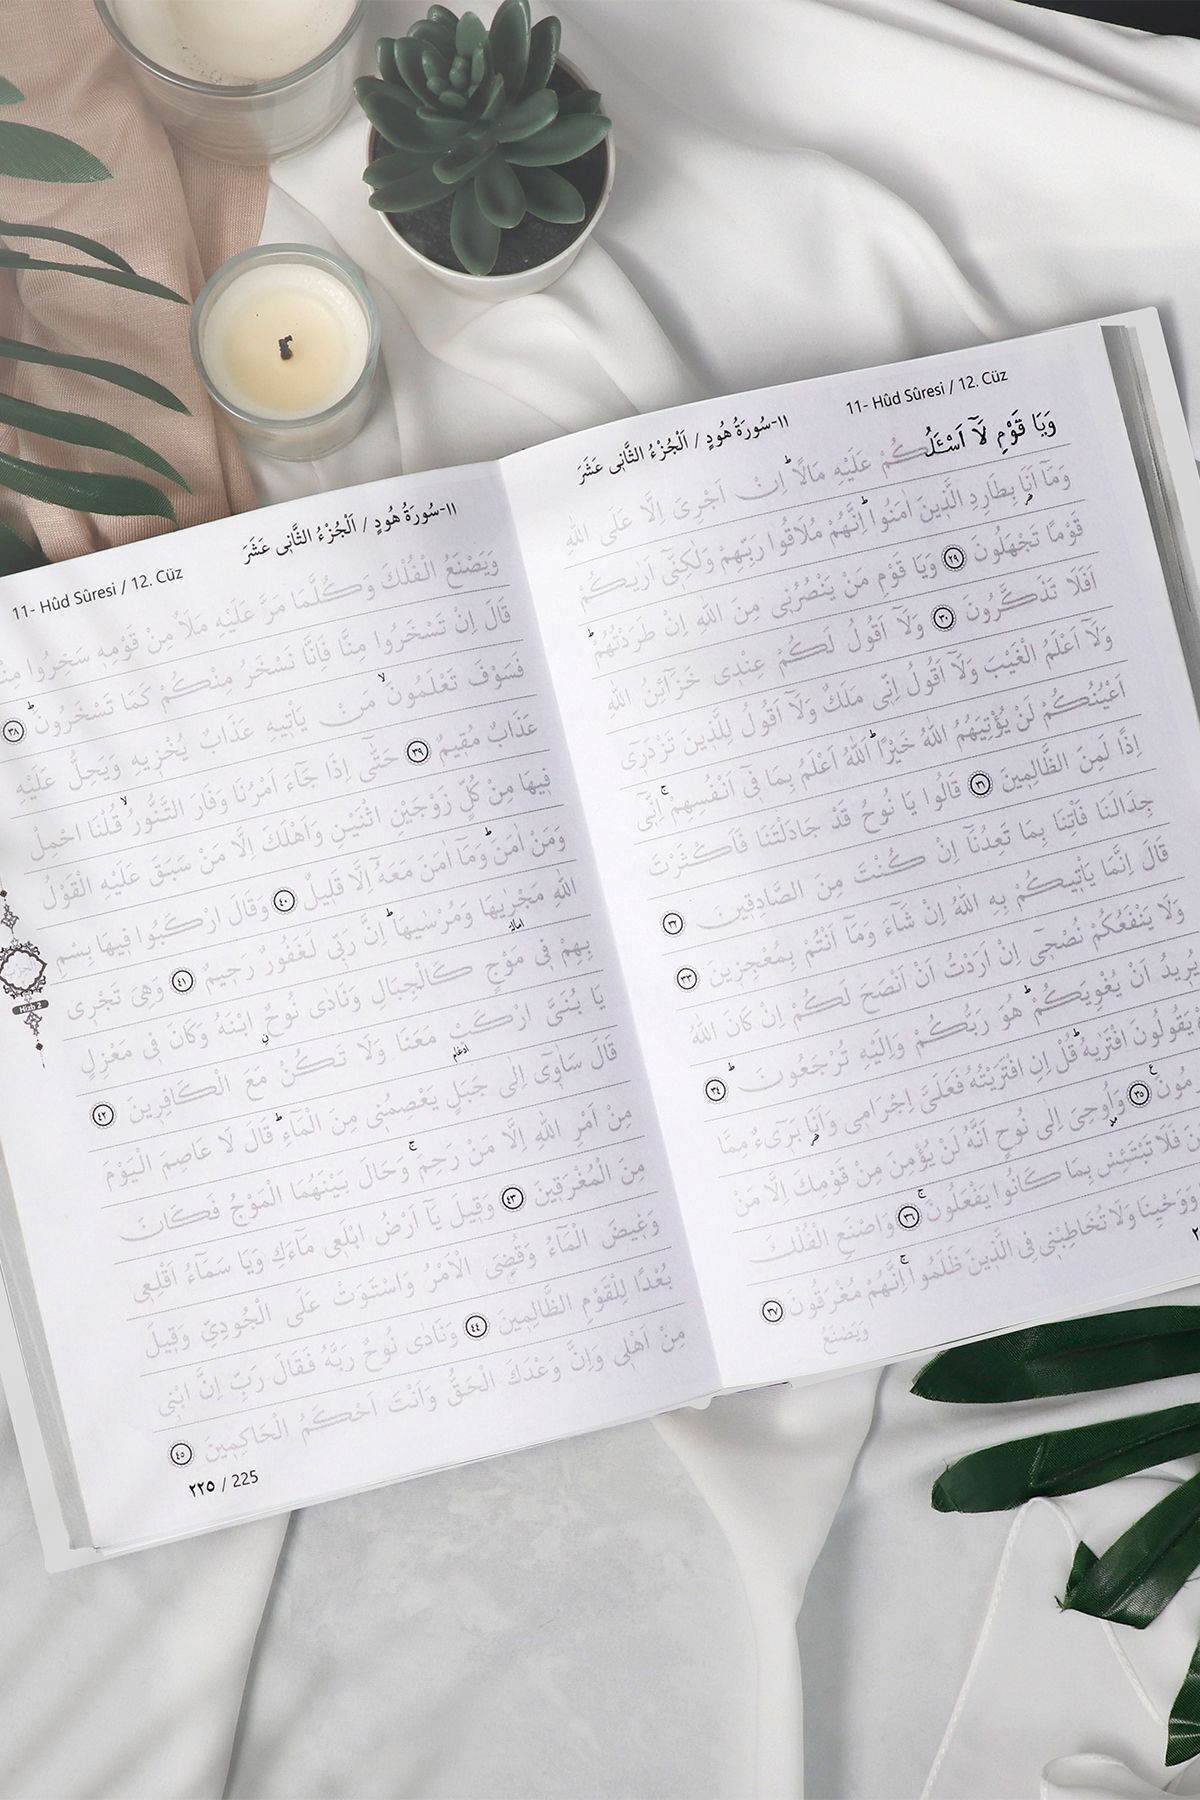 11- Hûd Sûresi / 12. Cüz
١١-سُورَةُ هُودٍ / اَلْجُزْءُ الثَّانِى عَشَرَ
وَيَا قَوْمِ لَٓا اَسْـَٔلُكُمْ عَلَيْهِ مَالًا ط اِنْ اَجْرِىَ اِلَّا عَلَى اللّٰهِ
وَمَٓا اَنَا بِطَارِدِ الَّذِينَ اٰمَنُوا ط اِنَّهُمْ مُلَاقُوا رَبِّهِمْ وَلٰكِنِّٓى اَرٰيكُمْ
قَوْمًا تَجْهَلُونَ ٢٩ وَيَا قَوْمِ مَنْ يَنْصُرُنِى مِنَ اللّٰهِ اِنْ طَرَدْتُهُمْ ط
اَفَلَا تَذَكَّرُونَ ٣٠ وَلَٓا اَقُولُ لَكُمْ عِنْدِى خَزَٓائِنُ اللّٰهِ
وَلَٓا اَعْلَمُ الْغَيْبَ وَلَٓا اَقُولُ اِنِّى مَلَكٌ وَلَٓا اَقُولُ لِلَّذِينَ تَزْدَرِٓى
اَعْيُنُكُمْ لَنْ يُؤْتِيَهُمُ اللّٰهُ خَيْرًا ط اَللّٰهُ اَعْلَمُ بِمَا فِٓى اَنْفُسِهِمْ ج اِنِّٓى
اِذًا لَمِنَ الظَّالِمِينَ ٣١ قَالُوا يَا نُوحُ قَدْ جَادَلْتَنَا فَاَكْثَرْتَ
جِدَالَنَا فَاْتِنَا بِمَا تَعِدُنَٓا اِنْ كُنْتَ مِنَ الصَّادِقِينَ ٣٢
قَالَ اِنَّمَا يَاْتِيكُمْ بِهِ اللّٰهُ اِنْ شَٓاءَ وَمَٓا اَنْتُمْ بِمُعْجِزِينَ ٣٣
وَلَا يَنْفَعُكُمْ نُصْحِٓى اِنْ اَرَدْتُ اَنْ اَنْصَحَ لَكُمْ اِنْ كَانَ اللّٰهُ
يُرِيدُ اَنْ يُغْوِيَكُمْ ط هُوَ رَبُّكُمْ وَاِلَيْهِ تُرْجَعُونَ ط ٣٤
يَقُولُونَ افْتَرٰيهُ ط قُلْ اِنِ افْتَرَيْتُهُ فَعَلَىَّ اِجْرَامِى وَاَنَا بَرِٓىءٌ مِمَّا
مُونَ ع ٣٥ وَاُوحِىَ اِلٰى نُوحٍ اَنَّهُ لَنْ يُؤْمِنَ مِنْ قَوْمِكَ اِلَّا مَنْ
نَ فَلَا تَبْتَئِسْ بِمَا كَانُوا يَفْعَلُونَ ج ٣٦ وَاصْنَعِ الْفُلْكَ
وَوَحْيِنَا وَلَا تُخَاطِبْنِى فِى الَّذِينَ ظَلَمُوا ج اِنَّهُمْ مُغْرَقُونَ ٣٧
وَيَصْنَعُ
١١-سُورَةُ هُودٍ / اَلْجُزْءُ الثَّانِى عَشَرَ
11- Hûd Sûresi / 12. Cüz
وَيَصْنَعُ الْفُلْكَ وَكُلَّمَا مَرَّ عَلَيْهِ مَلَاٌ مِنْ قَوْمِهِ سَخِرُوا مِنْ
قَالَ اِنْ تَسْخَرُوا مِنَّا فَاِنَّا نَسْخَرُ مِنْكُمْ كَمَا تَسْخَرُونَ ط ٣٨
فَسَوْفَ تَعْلَمُونَ لا مَنْ يَاْتِيهِ عَذَابٌ يُخْزِيهِ وَيَحِلُّ عَلَيْهِ
عَذَابٌ مُقِيمٌ ٣٩ حَتّٰٓى اِذَا جَٓاءَ اَمْرُنَا وَفَارَ التَّنُّورُ لا قُلْنَا احْمِلْ
فِيهَا مِنْ كُلٍّ زَوْجَيْنِ اثْنَيْنِ وَاَهْلَكَ اِلَّا مَنْ سَبَقَ عَلَيْهِ الْقَوْلُ
وَمَنْ اٰمَنَ ط وَمَٓا اٰمَنَ مَعَهُٓ اِلَّا قَلِيلٌ ٤٠ وَقَالَ ارْكَبُوا فِيهَا بِسْمِ
اللّٰهِ مَجْرٰيهَا وَمُرْسٰيهَا ط اِنَّ رَبِّى لَغَفُورٌ رَحِيمٌ ٤١ وَهِىَ تَجْرِى
بِهِمْ فِى مَوْجٍ كَالْجِبَالِ وَنَادٰى نُوحٌ ابْنَهُ وَكَانَ فِى مَعْزِلٍ
يَا بُنَىَّ ارْكَبْ مَعَنَا وَلَا تَكُنْ مَعَ الْكَافِرِينَ ٤٢
قَالَ سَاٰوِٓى اِلٰى جَبَلٍ يَعْصِمُنِى مِنَ الْمَٓاءِ ط قَالَ لَا عَاصِمَ الْيَوْمَ
مِنْ اَمْرِ اللّٰهِ اِلَّا مَنْ رَحِمَ ج وَحَالَ بَيْنَهُمَا الْمَوْجُ فَكَانَ
مِنَ الْمُغْرَقِينَ ٤٣ وَقِيلَ يَٓا اَرْضُ ابْلَعِى مَٓاءَكِ وَيَا سَمَٓاءُ اَقْلِعِى
وَغِيضَ الْمَٓاءُ وَقُضِىَ الْاَمْرُ وَاسْتَوَتْ عَلَى الْجُودِىِّ وَقِيلَ
بُعْدًا لِلْقَوْمِ الظَّالِمِينَ ٤٤ وَنَادٰى نُوحٌ رَبَّهُ فَقَالَ رَبِّ اِنَّ ابْنِى
مِنْ اَهْلِى وَاِنَّ وَعْدَكَ الْحَقُّ وَاَنْتَ اَحْكَمُ الْحَاكِمِينَ ٤٥
Hizb 2
٢٢٥ / 225